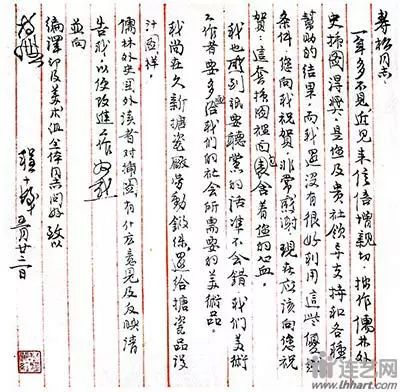 同志:
一年多不见近见来信倍增親切。拙作儒林外
史插图得奖,是您及贵社领导支持和各种
帮助的结果,而我还没有很好利用这些優越
条件。您向我祝贺非常感谢现在应该向您祝
贺:这套插图裡面包含着您的心血。
我也感到要聽党的话准不会错我们美術
工作者要多给我们的社会所需要的美術品。
我尚在久新搪瓷廠劳動锻炼,还给搪瓷品设
计图样。
儒林外史国外读者对插图有什么意见及反映请
告我,以便改進工作。此致
並向
编译印及美术组全体同志问好 致以
敬禮
程十髮 五月廿三日
连艺网
www.lhhart.com